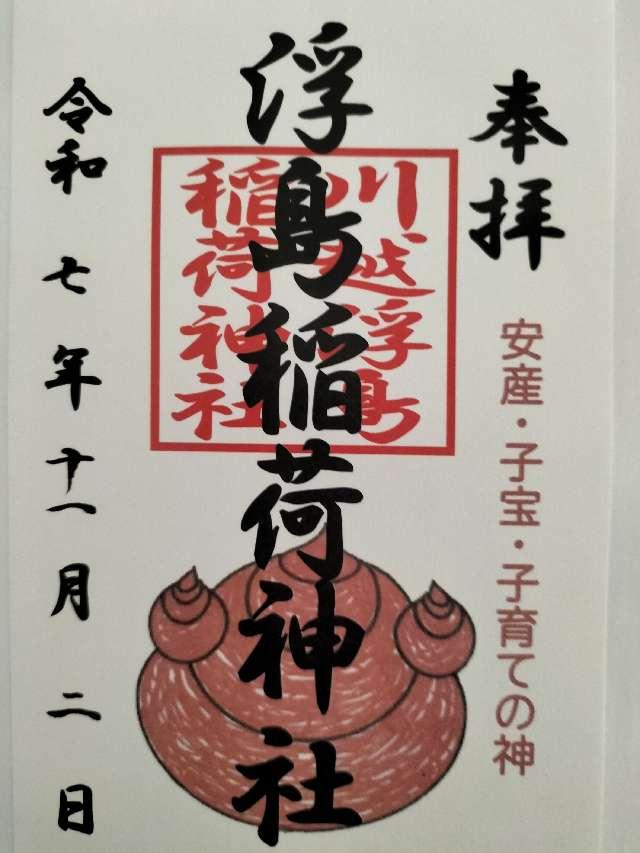 奉拝
安産・子宝・子育ての神
浮島稲荷神社
川越浮島
稲荷神社
令和七年十一月二日